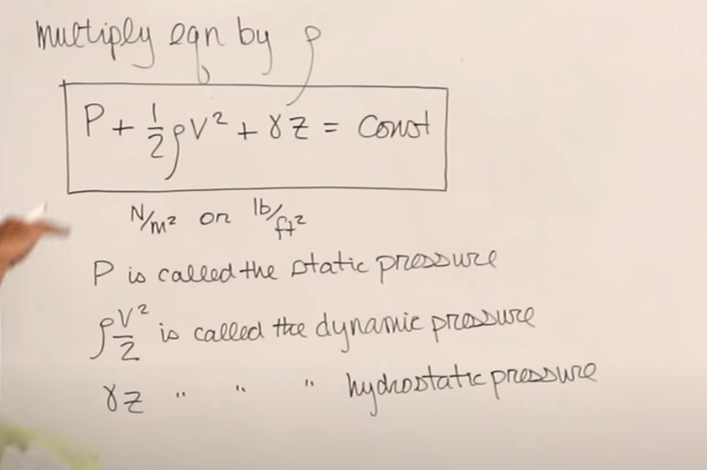 multiply eqn by ρ
P + 1/2 ρV² + γz = Const
N/m² or lb/ft²
P is called the static pressure
ρV²/2 is called the dynamic pressure
γz " " " hydrostatic pressure